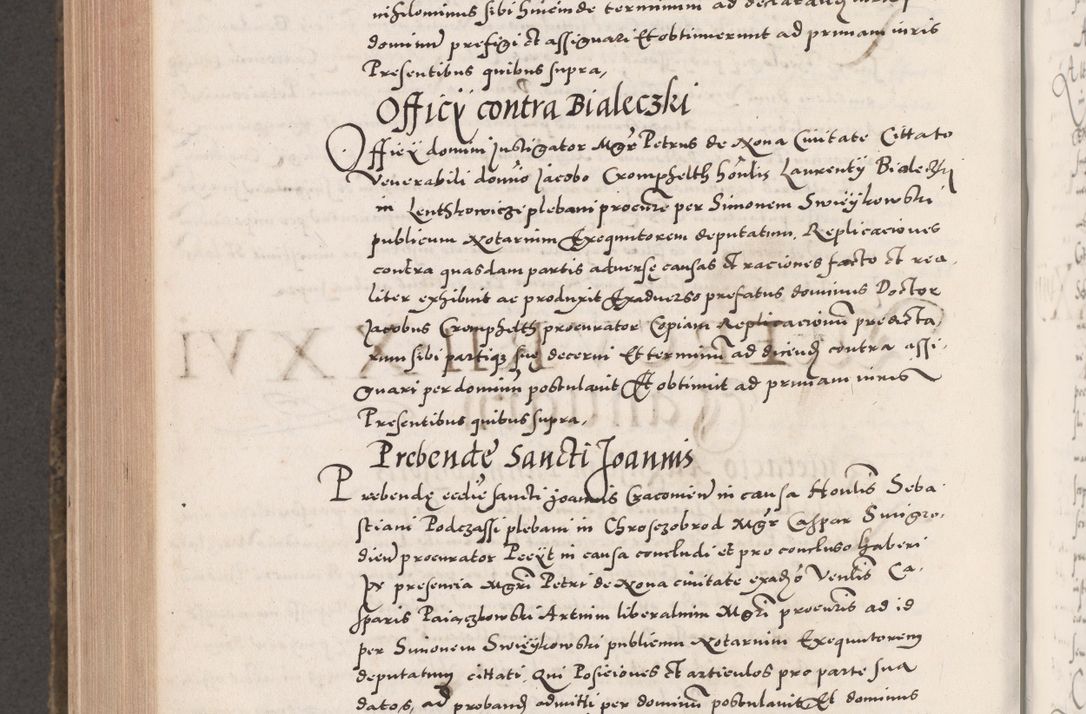 nihilominus sibi hincinde terminum ad
dominū prefigi et assignari Et obtinuerunt ad primam iuris
Presentibus quibus supra,
Officÿ contra Bialeczki
Officÿ domini Instigator Mgr̄ Petrus de Nona Ciuitate Cittato
Venerabili domīo Jacobo Crompfelth hon̄lis Laurentÿ Bialeczki
in Lenthkowicze plebani procure per Simonem Swieÿkowski
publicum Notarium Exequutorem deputatum, Replicaciones
contra quasdam partis aduersę causas et raciones facto et rea,
liter exhibuit ac produxit Exaduerso prefatus dominus Doctor
Jacobus Crompfelth procurator Copiam Replicacionū predicta,
rum sibi partiqȝ suę decerni Et terminū ad dicend̄ contra assi,
gnari per dominū postulauit Et obtinuit ad primam iuris
Presentibus quibus supra,
Prebendę Sancti Joannis
Prebendę ecclīe sancti Joannis Cracouien̄ in causa Hon̄lis Seba,
stiani Podczassi plebani in Chrosczobrod Mgr̄ Caspar Swigro,
dien̄ procurator Peeÿt in causa concludi et pro concluso haberi
In presencia Mgrī Petri de Nona ciuitate ex ađo Ven̄lis Ca,
sparis Paiaczkowski Artium liberalium Mgrī procuris ad id
per Simonem Swieÿkowski publicum Notarium Exequutorem
deputatum cittati, Qui Posiciones et articulos pro parte sua
datos, ad proband̄ admitti per dominū postulauit Et dominus